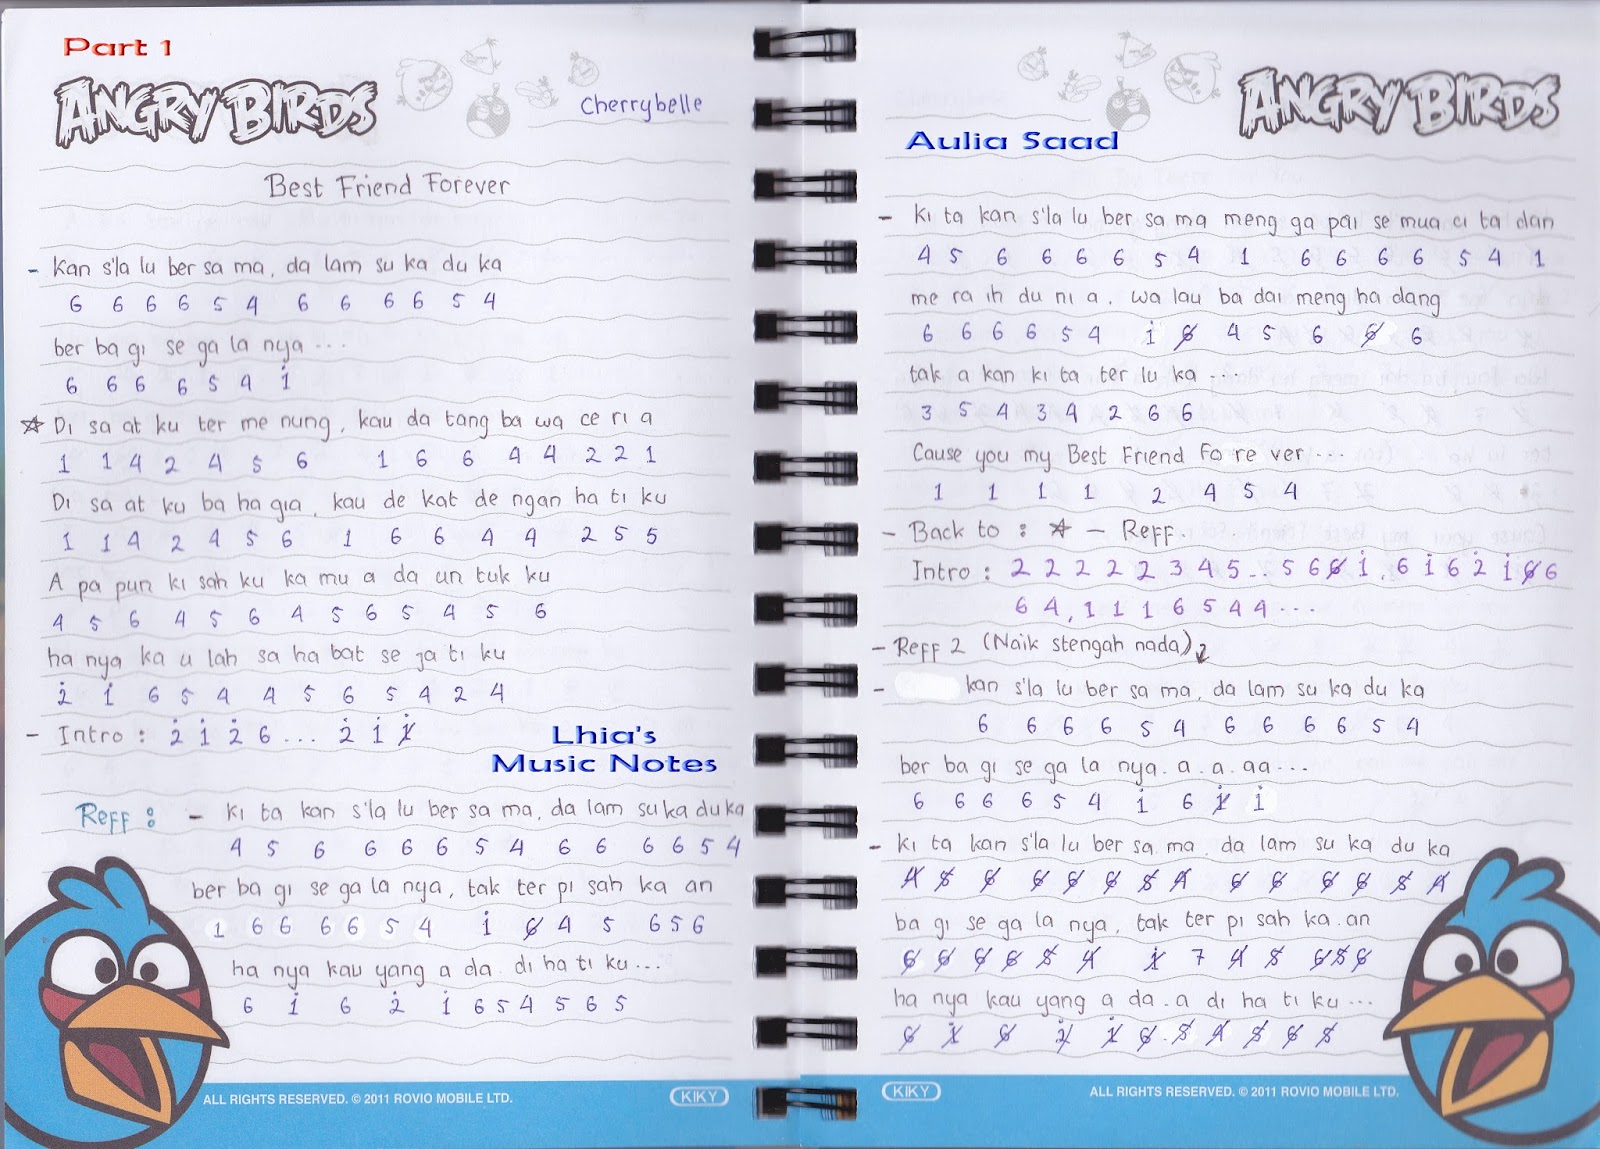 Part 1
ANGRY BIRDS
Cherrybelle
Best Friend Forever
- Kan s'la lu ber sa ma, da lam su ka du ka
6 6 6 6 5 4 6 6 6 6 5 4
ber ba gi se ga la nya ...
6 6 6 6 5 4 i
☆ Di sa at ku ter me nung, kau da tang ba wa ce ri a
1 1 4 2 4 5 6 1 6 6 4 4 2 2 1
Di sa at ku ba ha gia, kau de kat de ngan ha ti ku
1 1 4 2 4 5 6 1 6 6 4 4 2 5 5
A pa pun ki sah ku ka mu a da un tuk ku
4 5 6 4 5 6 4 5 6 5 4 5 6
ha nya ka u lah sa ha bat se ja ti ku
2̇ 1̇ 6 5 4 4 5 6 5 4 2 4
- Intro : 2̇ 1̇ 2̇ 6 ... 2̇ 1̇ 1̸̇
Lhia's
Music Notes
Reff : - ki ta kan s'la lu ber sa ma, da lam su ka du ka
4 5 6 6 6 6 5 4 6 6 6 6 5 4
ber ba gi se ga la nya, tak ter pi sah ka an
1 6 6 6 6 5 4 1̇ 6̸ 4 5 6 5 6
ha nya kau yang a da di ha ti ku ...
6 1̇ 6 2̇ 1̇ 6 5 4 5 6 5
ALL RIGHTS RESERVED. © 2011 ROVIO MOBILE LTD.
KIKY
ANGRY BIRDS
Aulia Saad
- ki ta kan s'la lu ber sa ma meng ga pai se mua ci ta dan
4 5 6 6 6 6 5 4 1 6 6 6 6 5 4 1
me ra ih du ni a, wa lau ba dai meng ha dang
6 6 6 6 5 4 1̇ 6̸ 4 5 6 6̸ 6
tak a kan ki ta ter lu ka ...
3 5 4 3 4 2 6 6
Cause you my Best Friend Fo re ver ...
1 1 1 1 2 4 5 4
- Back to : ☆ - Reff.
Intro : 2 2 2 2 2 3 4 5 .. 5 6 6̸ 1̇, 6 1̇ 6 2̇ 1̇ 6̸ 6
6 4, 1 1 1 6 5 4 4 ...
- Reff 2 (Naik stengah nada)
- kan s'la lu ber sa ma, da lam su ka du ka
6 6 6 6 5 4 6 6 6 6 5 4
ber ba gi se ga la nya. a. a. aa ...
6 6 6 6 5 4 1̇ 6 1̸̇ 1̇
- ki ta kan s'la lu ber sa ma, da lam su ka du ka
4̸ 5̸ 6̸ 6̸ 6̸ 6̸ 5̸ 4̸ 6̸ 6̸ 6̸ 6̸ 5̸ 4̸
ba gi se ga la nya, tak ter pi sah ka. an
6̸ 6̸ 6̸ 6̸ 5̸ 4̸ 1̸̇ 7 4̸ 5̸ 6̸ 5̸ 6̸
ha nya kau yang a da. a di ha ti ku ...
6̸ 1̸̇ 6̸ 2̸̇ 1̸̇ 6̸. 5̸ 4̸ 5̸ 6̸ 5̸
KIKY
ALL RIGHTS RESERVED. © 2011 ROVIO MOBILE LTD.